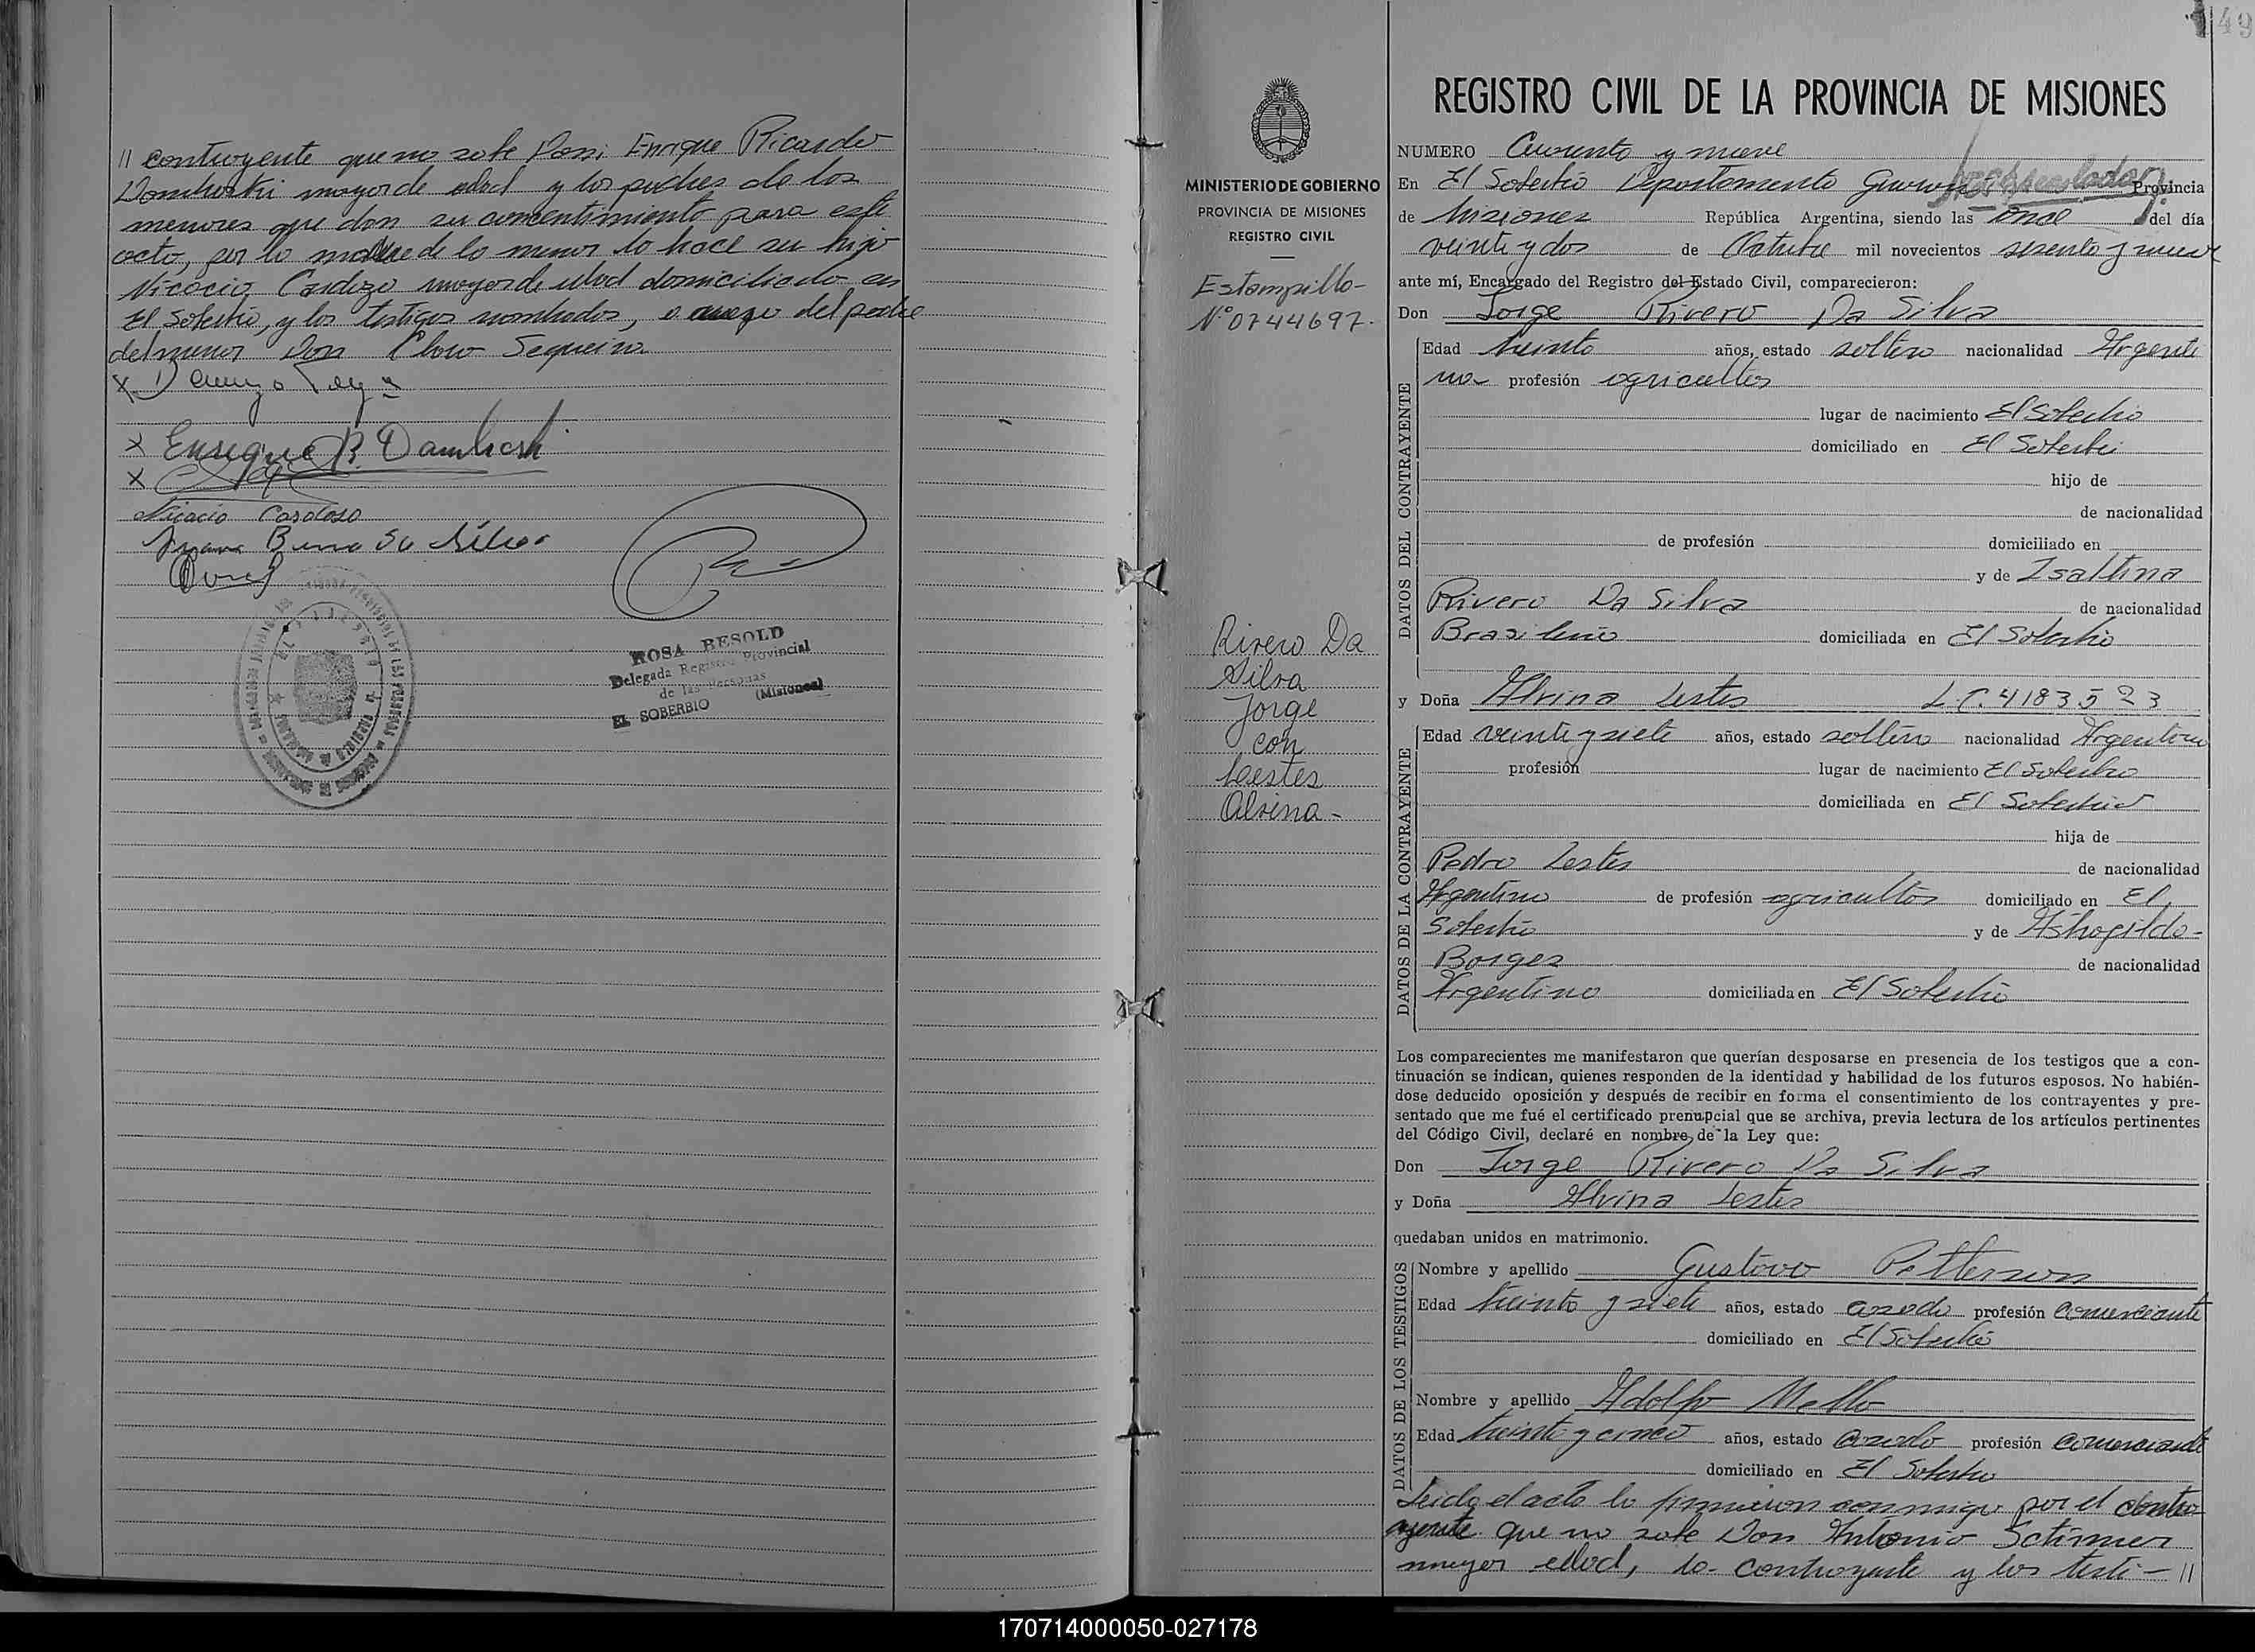 // contrayente que no sabe Don Enrique Ricardo
Dombroski mayor de edad y los padres de los
menores que dan su consentimiento para este
acto, por la madre de la menor lo hace su hijo
Nicacio Cardozo mayor de edad domiciliado en
El Soberbio, y los testigos nombrados, a ruego del padre
del menor Don Sequeira
x
x Enrique R.
x
Nicacio Cardoso
ROSA BESOLD
Delegada Registro Provincial
de las Personas
EL SOBERBIO (Misiones)
49
MINISTERIO DE GOBIERNO
PROVINCIA DE MISIONES
REGISTRO CIVIL
Estampilla-
N.º 0744697.
Rivero Da
Silva
Jorge
con
Lestes
Alvina -
REGISTRO CIVIL DE LA PROVINCIA DE MISIONES
NUMERO Cuarenta y nueve
En El Soberbio Departamento Guaraní Provincia
de Misiones República Argentina, siendo las once del día
veinte y dos de Octubre mil novecientos sesenta y nueve
ante mí, Encargado del Registro del Estado Civil, comparecieron:
Don Jorge Rivero Da Silva
DATOS DEL CONTRAYENTE
Edad treinta años, estado soltero nacionalidad Argenti
no- profesión agricultor
lugar de nacimiento El Soberbio
domiciliado en El Soberbio
hijo de
de nacionalidad
de profesión domiciliado en
y de Isaltina
Rivero Da Silva de nacionalidad
Brasileña domiciliada en El Soberbio
y Doña Alvina Lestes L.C. 4183523
DATOS DE LA CONTRAYENTE
Edad veinte y siete años, estado soltera nacionalidad Argentina
profesión lugar de nacimiento El Soberbio
domiciliada en El Soberbio
hija de
Pedro Lestes de nacionalidad
Argentino de profesión agricultor domiciliado en El
Soberbio y de Astrogilda-
Borges de nacionalidad
Argentina domiciliada en El Soberbio
Los comparecientes me manifestaron que querían desposarse en presencia de los testigos que a con-
tinuación se indican, quienes responden de la identidad y habilidad de los futuros esposos. No habién-
dose deducido oposición y después de recibir en forma el consentimiento de los contrayentes y pre-
sentado que me fué el certificado prenupcial que se archiva, previa lectura de los artículos pertinentes
del Código Civil, declaré en nombre de la Ley que:
Don Jorge Rivero Da Silva
y Doña Alvina Lestes
quedaban unidos en matrimonio.
DATOS DE LOS TESTIGOS
Nombre y apellido Gustavo Petterson
Edad treinta y siete años, estado casado profesión comerciante
domiciliado en El Soberbio
Nombre y apellido Adolfo Mello
Edad treinta y cinco años, estado casado profesión comerciante
domiciliado en El Soberbio
Leida el acta la firmaron conmigo por el contra
yente que no sabe Don Antonio Schirmer
mayor edad, la contrayente y los testi- //
170714000050-027178